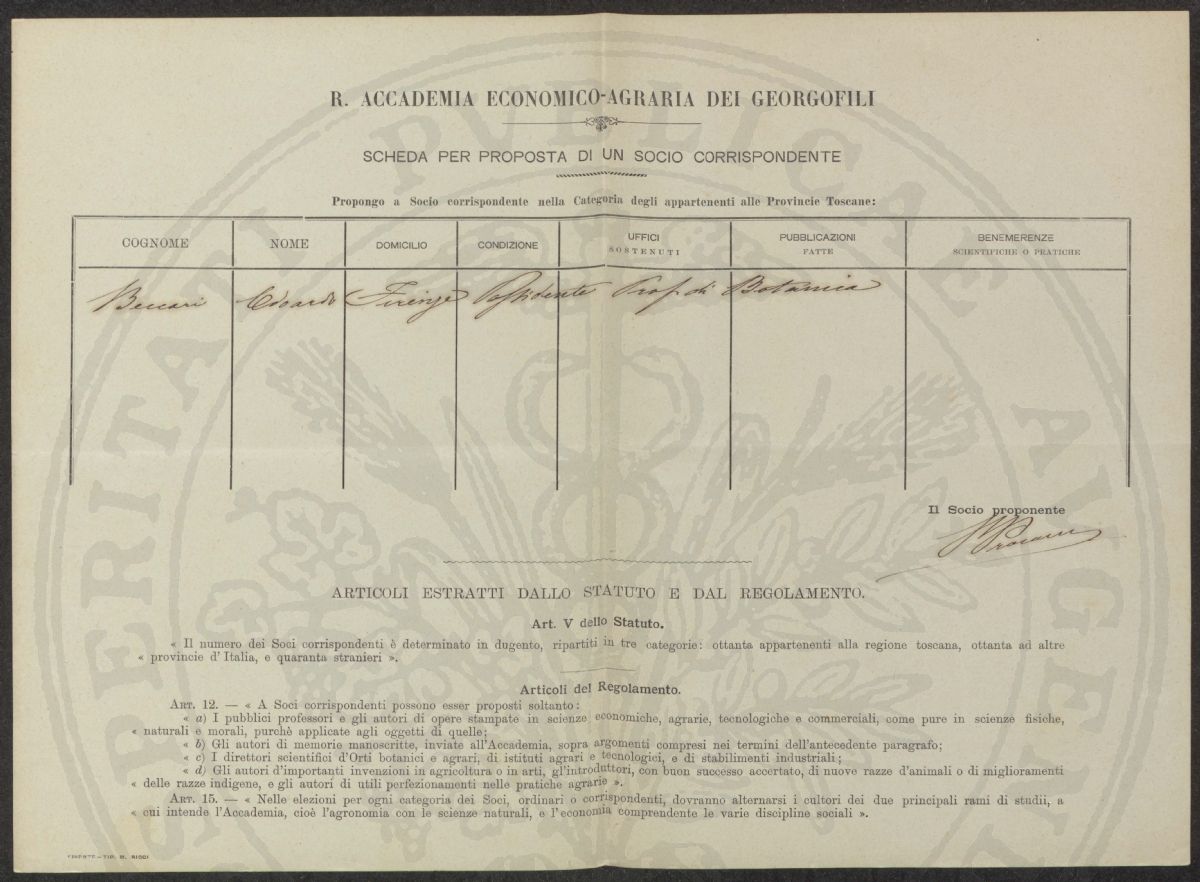 R. ACCADEMIA ECONOMICO-AGRARIA DEI GEORGOFILI
SCHEDA PER PROPOSTA DI UN SOCIO CORRISPONDENTE
Propongo a Socio corrispondente nella Categoria degli appartenenti alle Provincie Toscane:
COGNOME NOME DOMICILIO CONDIZIONE UFFICI SOSTENUTI PUBBLICAZIONI FATTE BENEMERENZE SCIENTIFICHE O PRATICHE
Beccari Odoardo Firenze Possidente Prof di Botanica
Il Socio proponente
ARTICOLI ESTRATTI DALLO STATUTO E DAL REGOLAMENTO.
Art. V dello Statuto.
« Il numero dei Soci corrispondenti è determinato in dugento, ripartiti in tre categorie: ottanta appartenenti alla regione toscana, ottanta ad altre
« provincie d'Italia, e quaranta stranieri ».
Articoli del Regolamento.
ART. 12. — « A Soci corrispondenti possono esser proposti soltanto:
« a) I pubblici professori e gli autori di opere stampate in scienze economiche, agrarie, tecnologiche e commerciali, come pure in scienze fisiche,
« naturali e morali, purchè applicate agli oggetti di quelle;
« b) Gli autori di memorie manoscritte, inviate all'Accademia, sopra argomenti compresi nei termini dell'antecedente paragrafo;
« c) I direttori scientifici d'Orti botanici e agrari, di istituti agrari e tecnologici, e di stabilimenti industriali;
« d) Gli autori d'importanti invenzioni in agricoltura o in arti, gl'introduttori, con buon successo accertato, di nuove razze d'animali o di miglioramenti
« delle razze indigene, e gli autori di utili perfezionamenti nelle pratiche agrarie ».
ART. 15. — « Nelle elezioni per ogni categoria dei Soci, ordinari o corrispondenti, dovranno alternarsi i cultori dei due principali rami di studii, a
« cui intende l'Accademia, cioè l'agronomia con le scienze naturali, e l'economia comprendente le varie discipline sociali ».
FIRENZE — TIP. M. RICCI
PROSPERITATI PUBLICAE AUGENDAE